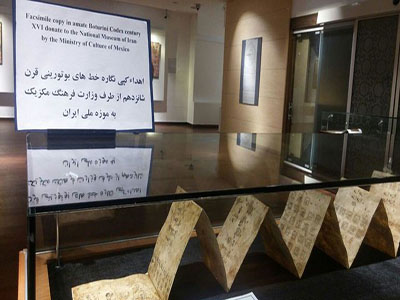 Facsimile copy in amate Boturini Codex century
XVI donate to the National Museum of Iran
by the Ministry of Culture of Mexico
اهداء کپی نگاره خط های بوتورینی قرن
شانزدهم از طرف وزارت فرهنگ مکزیک
به موزه ملی ایران